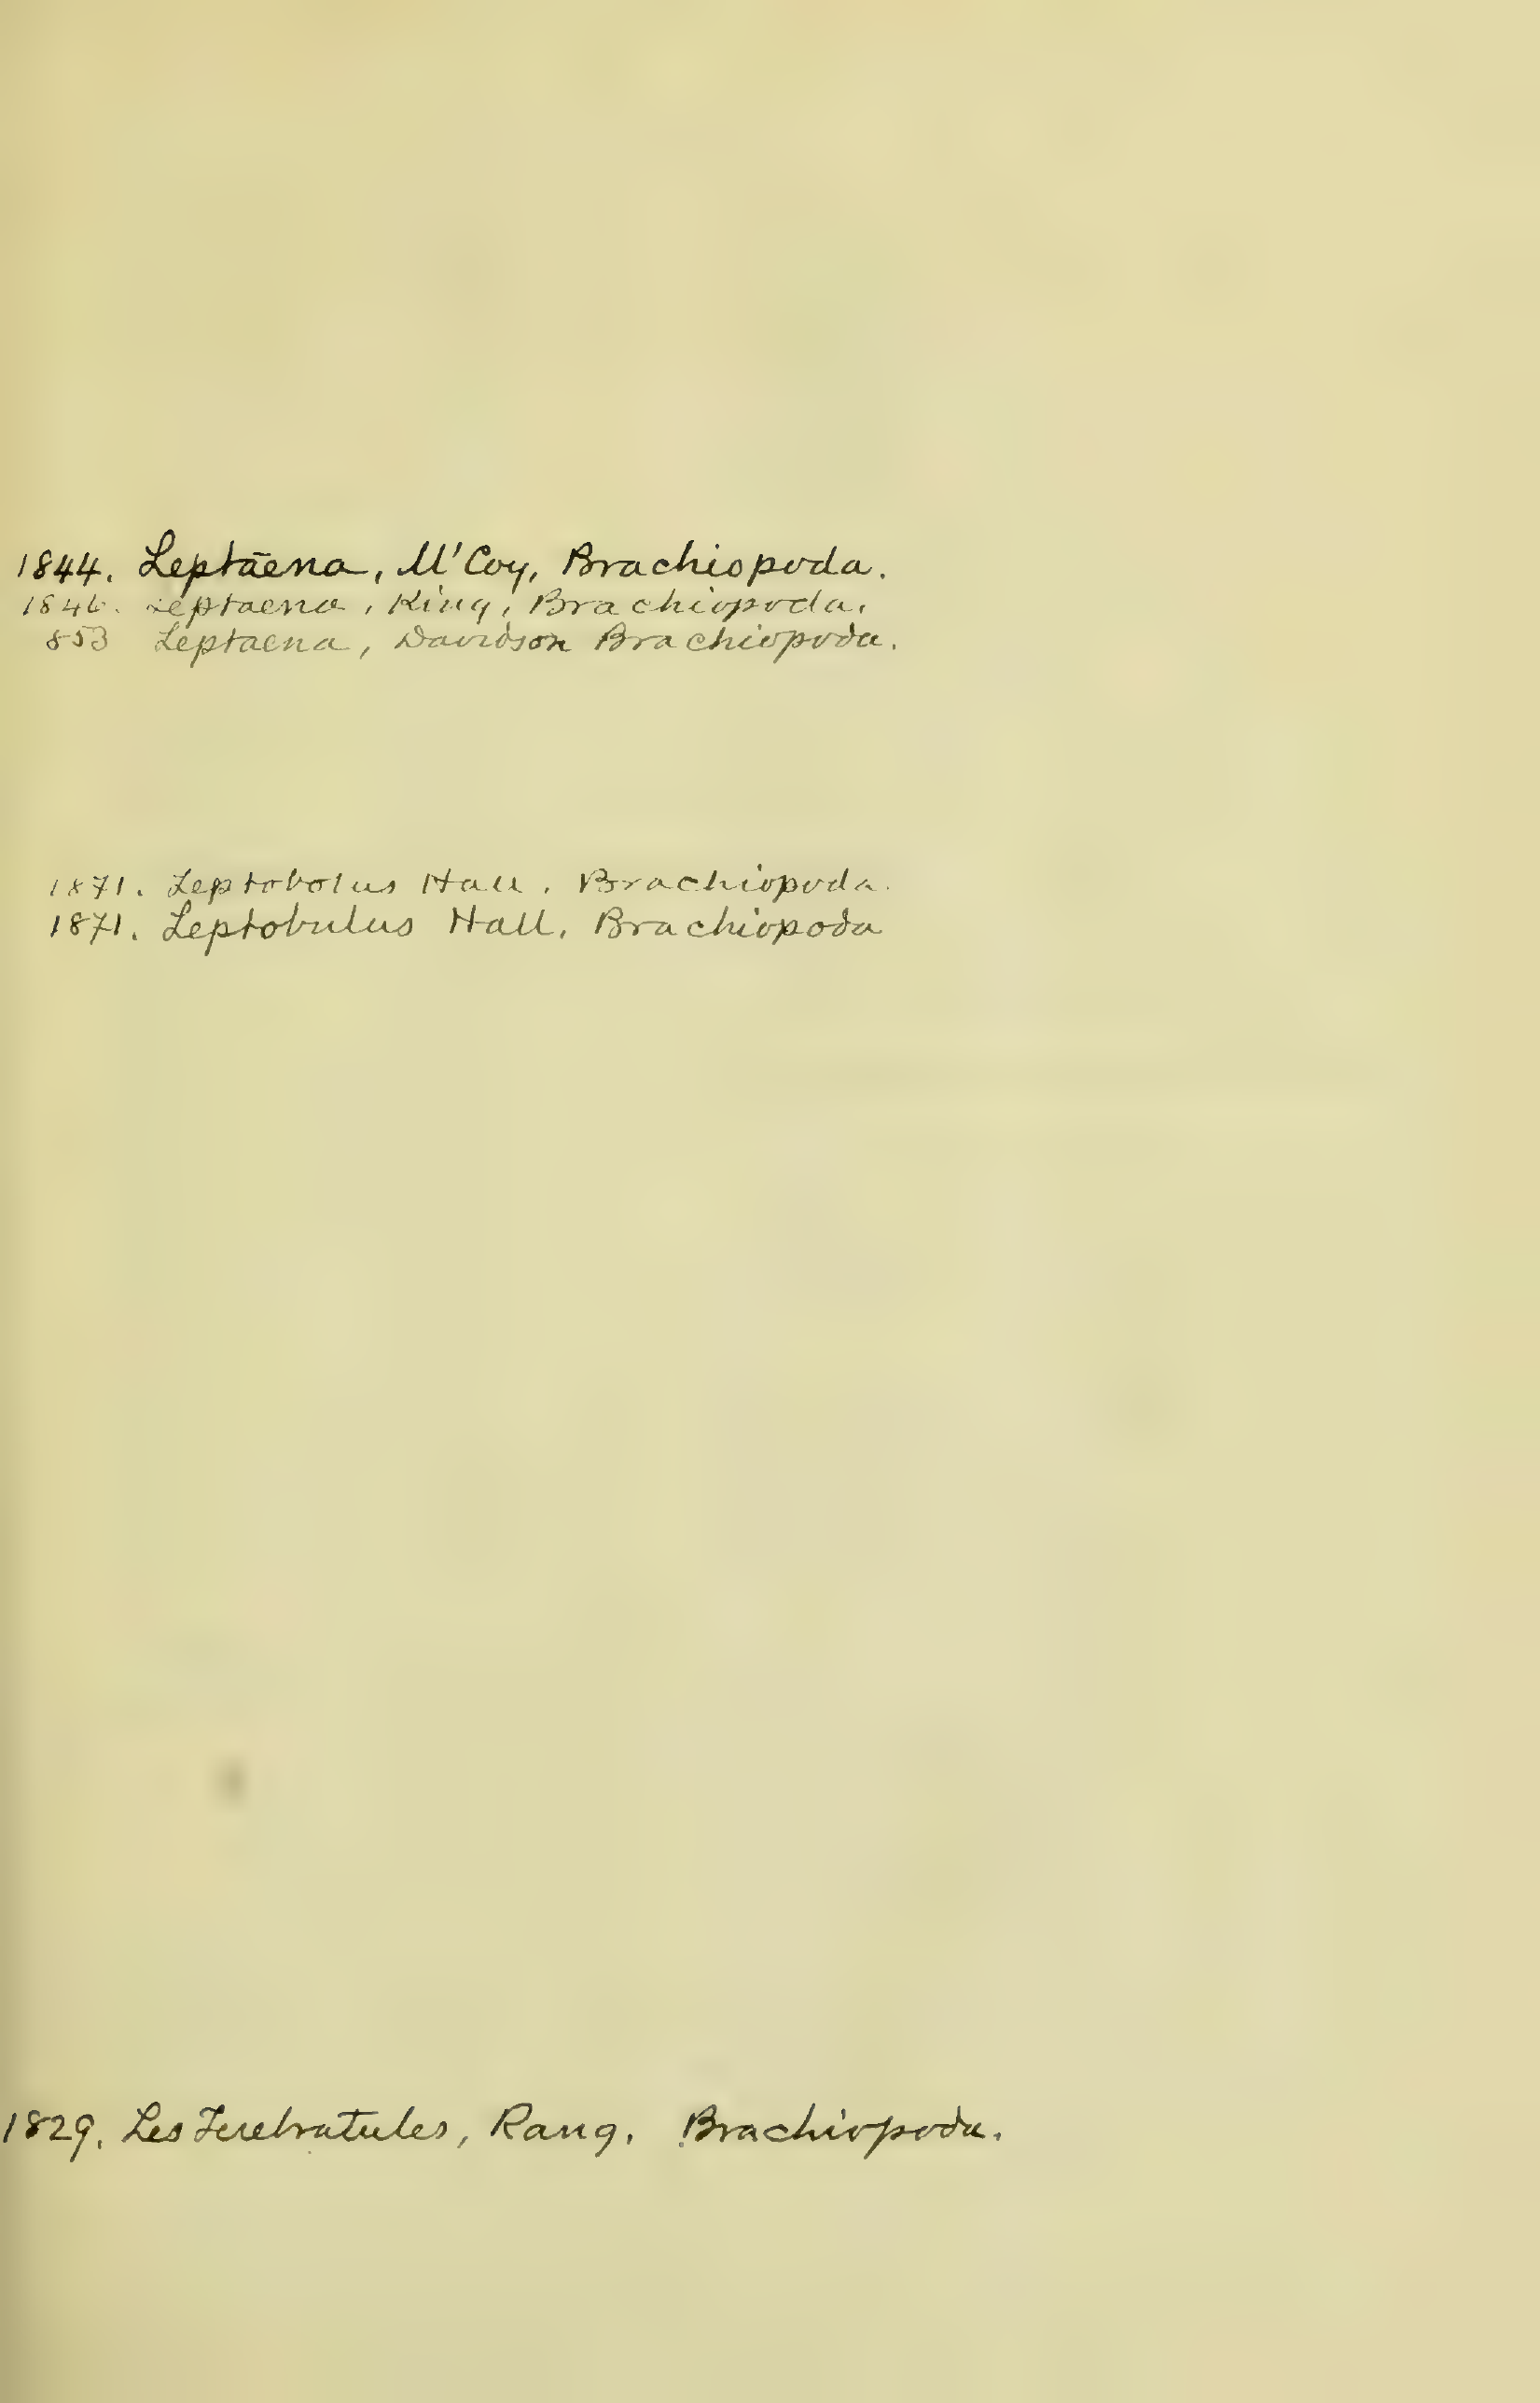 1844. Leptaena, M'Coy, Brachiopoda.
1846. Leptaena, King, Brachiopoda.
853 Leptaena, Davidson Brachiopoda.
1871. Leptobolus Hall, Brachiopoda.
1871. Leptobulus Hall, Brachiopoda
1829. Les Terebratules, Rang. Brachiopoda.